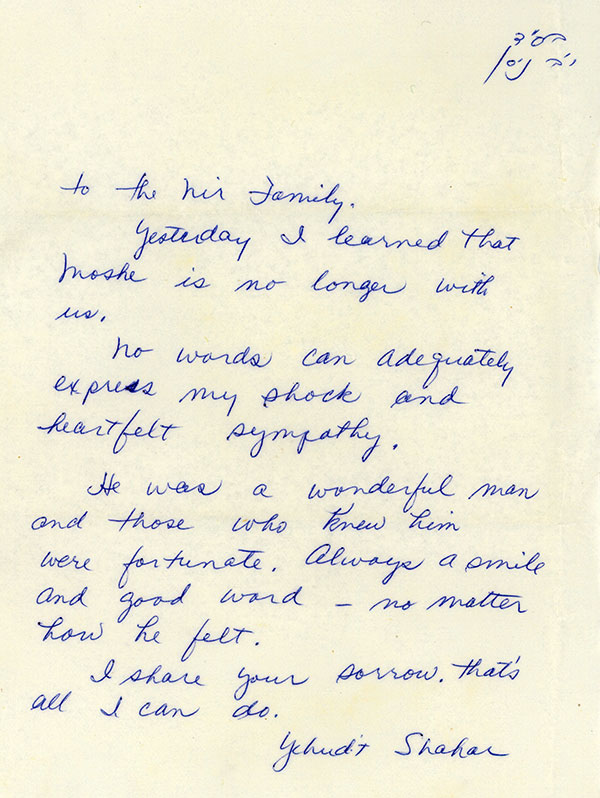 בס"ד
י"ב ניסן
to the Nir Family.
Yesterday I learned that
Moshe is no longer with
us.
No words can adequately
express my shock and
heartfelt sympathy.
He was a wonderful man
and those who knew him
were fortunate. Always a smile
and good word – no matter
how he felt.
I share your sorrow. That's
all I can do.
Yehudit Shahar